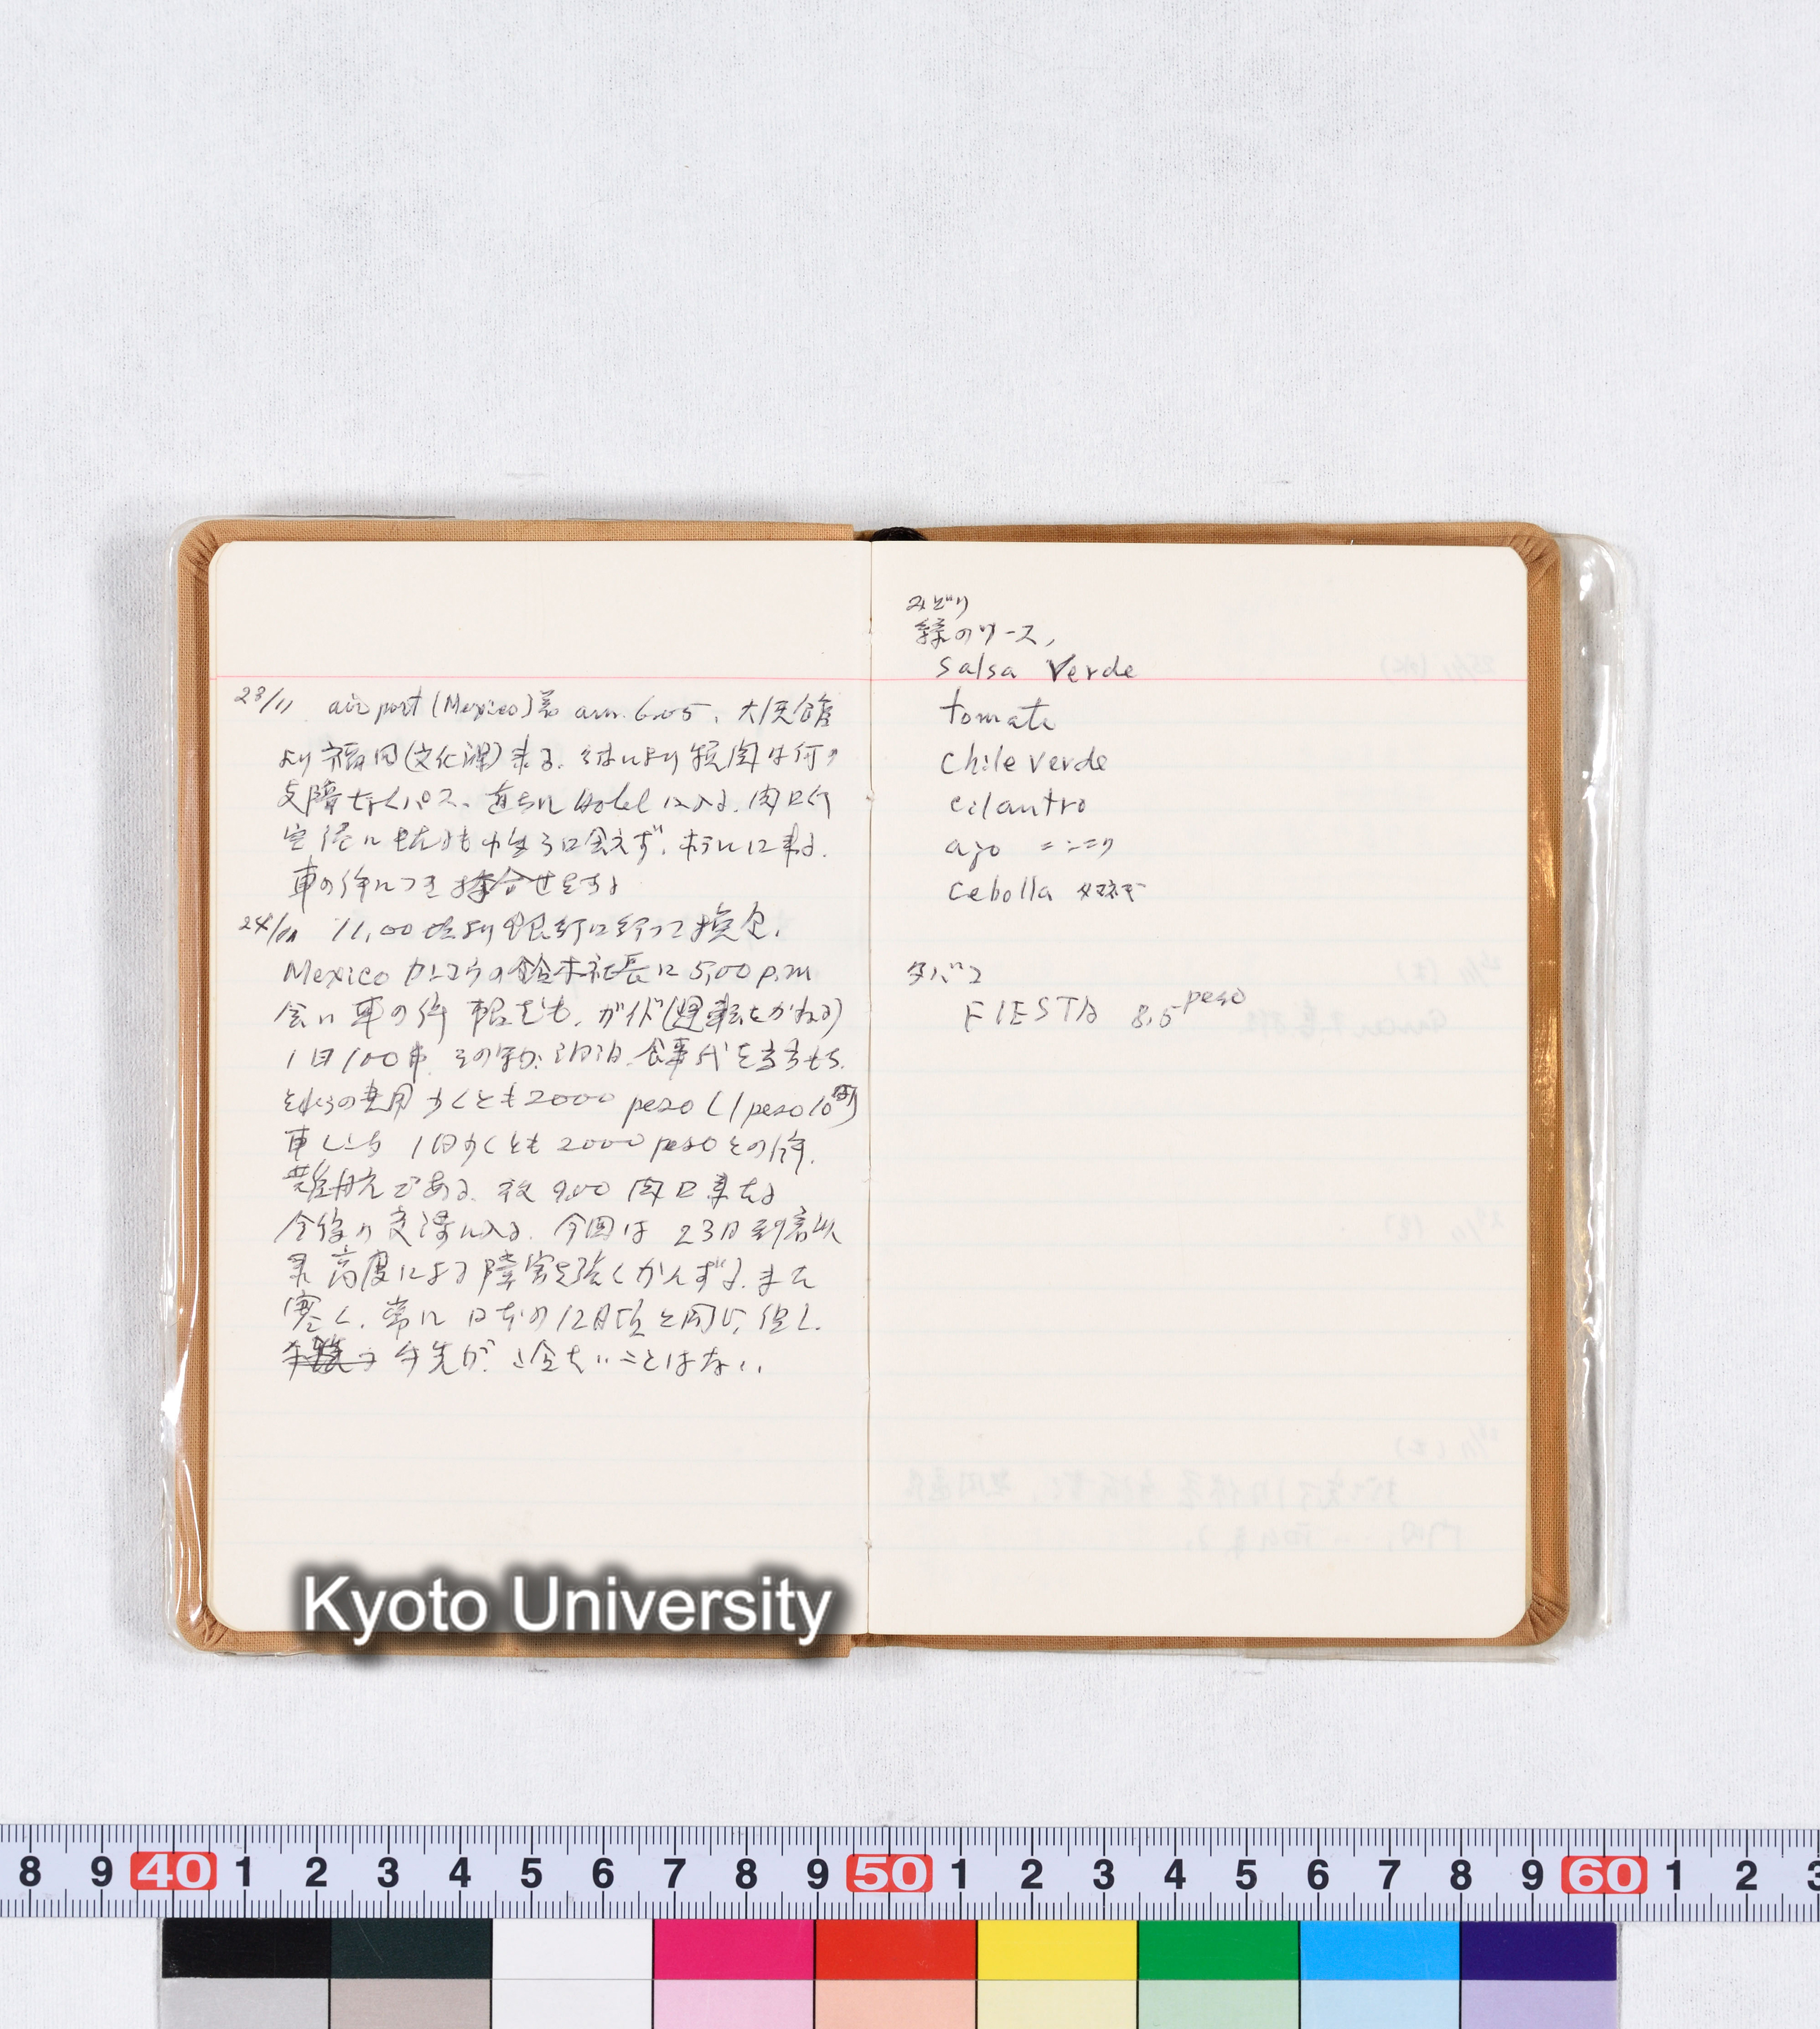 23/11 air port (Mexico)着 a.m. 6.05、大使館
より福田(文化課)来る. 税関は何の
支障なくパス、直ちに Hotel に入る. 関口行
空港に 会えず、ホテルに来る.
車の件につき 合せをする
24/11 11,00 頃より銀行に行って換金.
Mexico カンコウの鈴木社長に 5,00 p.m
会い 車の件 ガイド(運転をかねる)
1日100 その 泊 食事代を当方もち.
それらの費用 少くとも2000 peso (1 peso 10
車レンタ 1日少くとも 2000 peso との件.
難航である. 夜 9,00 関口来たる
今後の交渉に入る. 今回は 23日到着以
来 高度による障害を強くかんずる. また
寒く、常に日本の12月頃と同じ、但し、
手先が つめたいことはない.
みどり
緑のソース,
Salsa Verde
tomate
Chile Verde
cilantro
ajo ニンニク
Cebolla タマネギ
タバコ
FIESTA 8,5 peso
Kyoto University
8 9 40 1 2 3 4 5 6 7 8 9 50 1 2 3 4 5 6 7 8 9 60 1 2 3